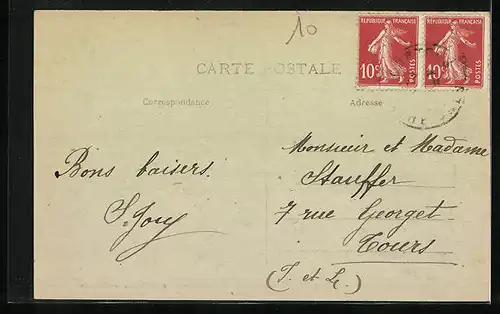 10
REPUBLIQUE FRANÇAISE REPUBLIQUE FRANÇAISE
10c POSTES 10c POSTES
CARTE POSTALE
Correspondance Adresse
Bons baisers.
Monsieur et Madame
Stauffer
7 rue Georget
Tours
(I. et L.)